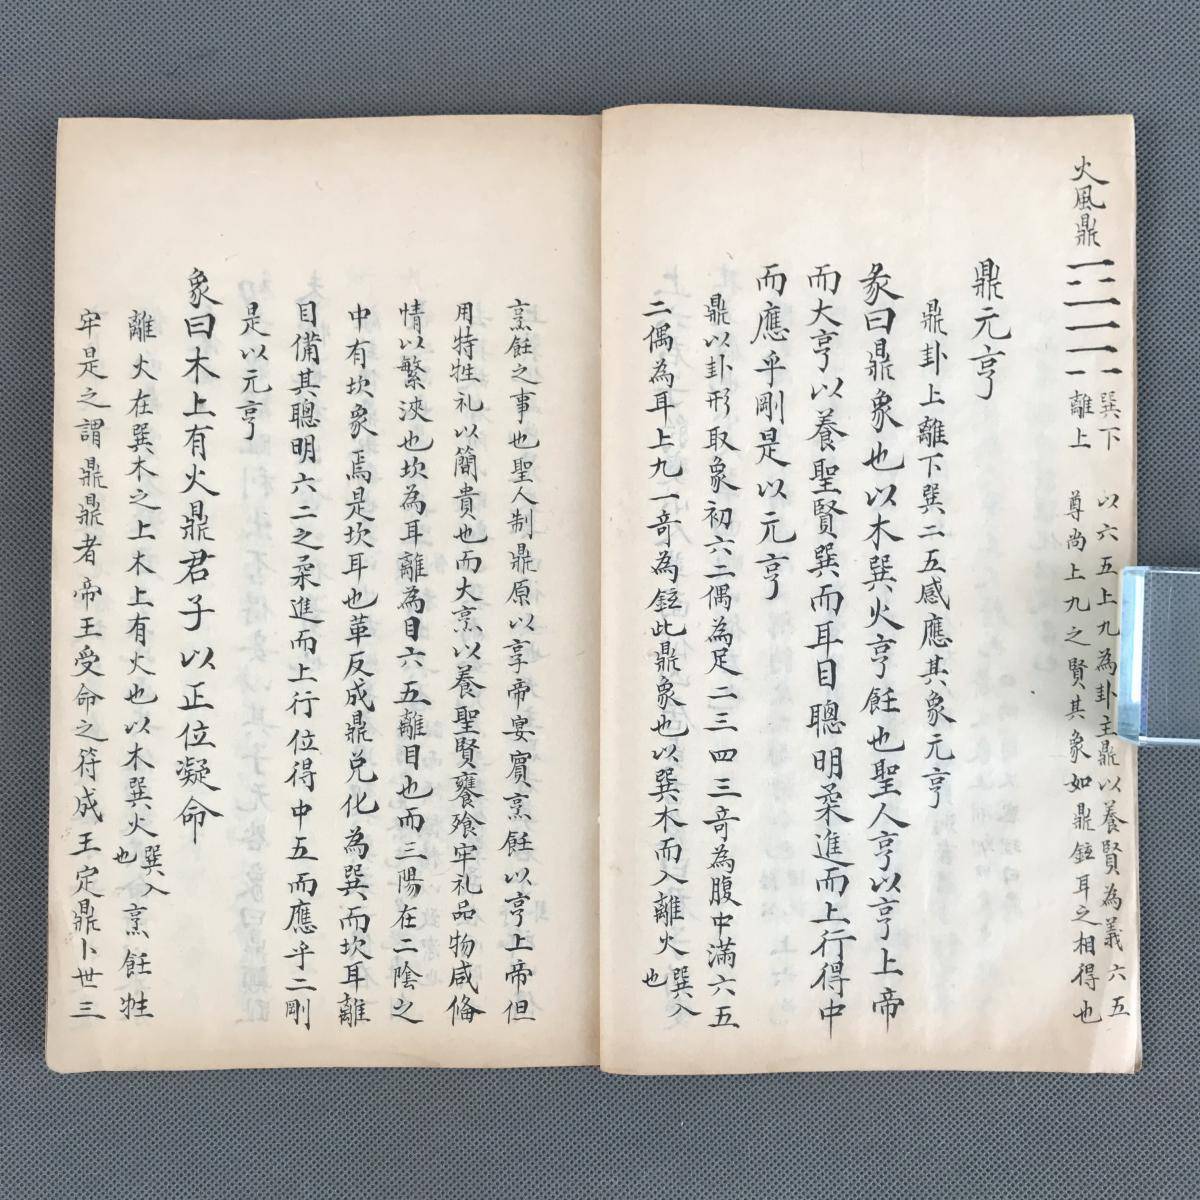 火風鼎
巽下 以六五上九為卦主鼎以養賢為義六五
離上 尊尚上九之賢其象如鼎鉉耳之相得也
鼎元亨
鼎卦上離下巽二五感應其象元亨
彖曰鼎象也以木巽火亨飪也聖人亨以亨上帝
而大亨以養聖賢巽而耳目聰明柔進而上行得中
而應乎剛是以元亨
鼎以卦形取象初六二偶為足二三四三竒為腹中滿六五
二偶為耳上九一竒為鉉此鼎象也以巽木而入離火巽入
也
烹飪之事也聖人制鼎原以享帝宴賓烹飪以亨上帝但
用特牲礼以簡貴也而大烹以養聖賢饔飱牢礼品物咸偹
情以繁浹也坎為耳離為目六五離目也而三陽在二陰之
中有坎象焉是坎耳也革反成鼎兌化為巽而坎耳離
目備其聰明六二之柔進而上行位得中五而應乎二剛
是以元亨
象曰木上有火鼎君子以正位凝命
離火在巽木之上木上有火也以木巽火巽入
也烹飪牲
牢是之謂鼎鼎者帝王受命之符成王定鼎卜世三